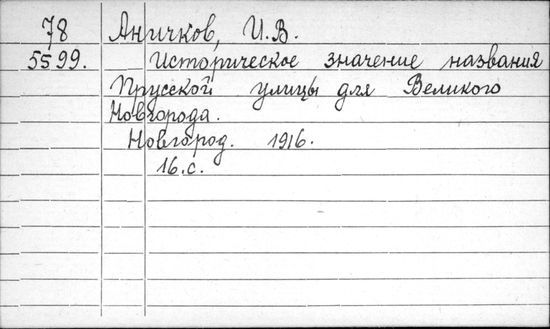 78 Аничков, И.В.
5599. Историческое значение названия
Прусской улицы для Великого
Новгорода.
Новгород. 1916.
16.с.